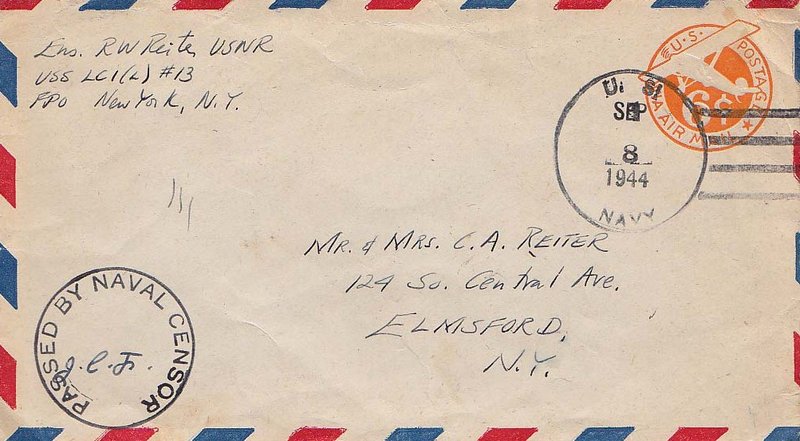 Ens. RW Reiter, USNR
USS LCI(L) #13
FPO New York, N.Y.
U.S. POSTAGE
VIA AIR MAIL
6¢
U. S.
SEP
8
1944
NAVY
Mr. & Mrs. C.A. Reiter
124 So. Central Ave.
ELMSFORD,
N.Y.
PASSED BY NAVAL CENSOR